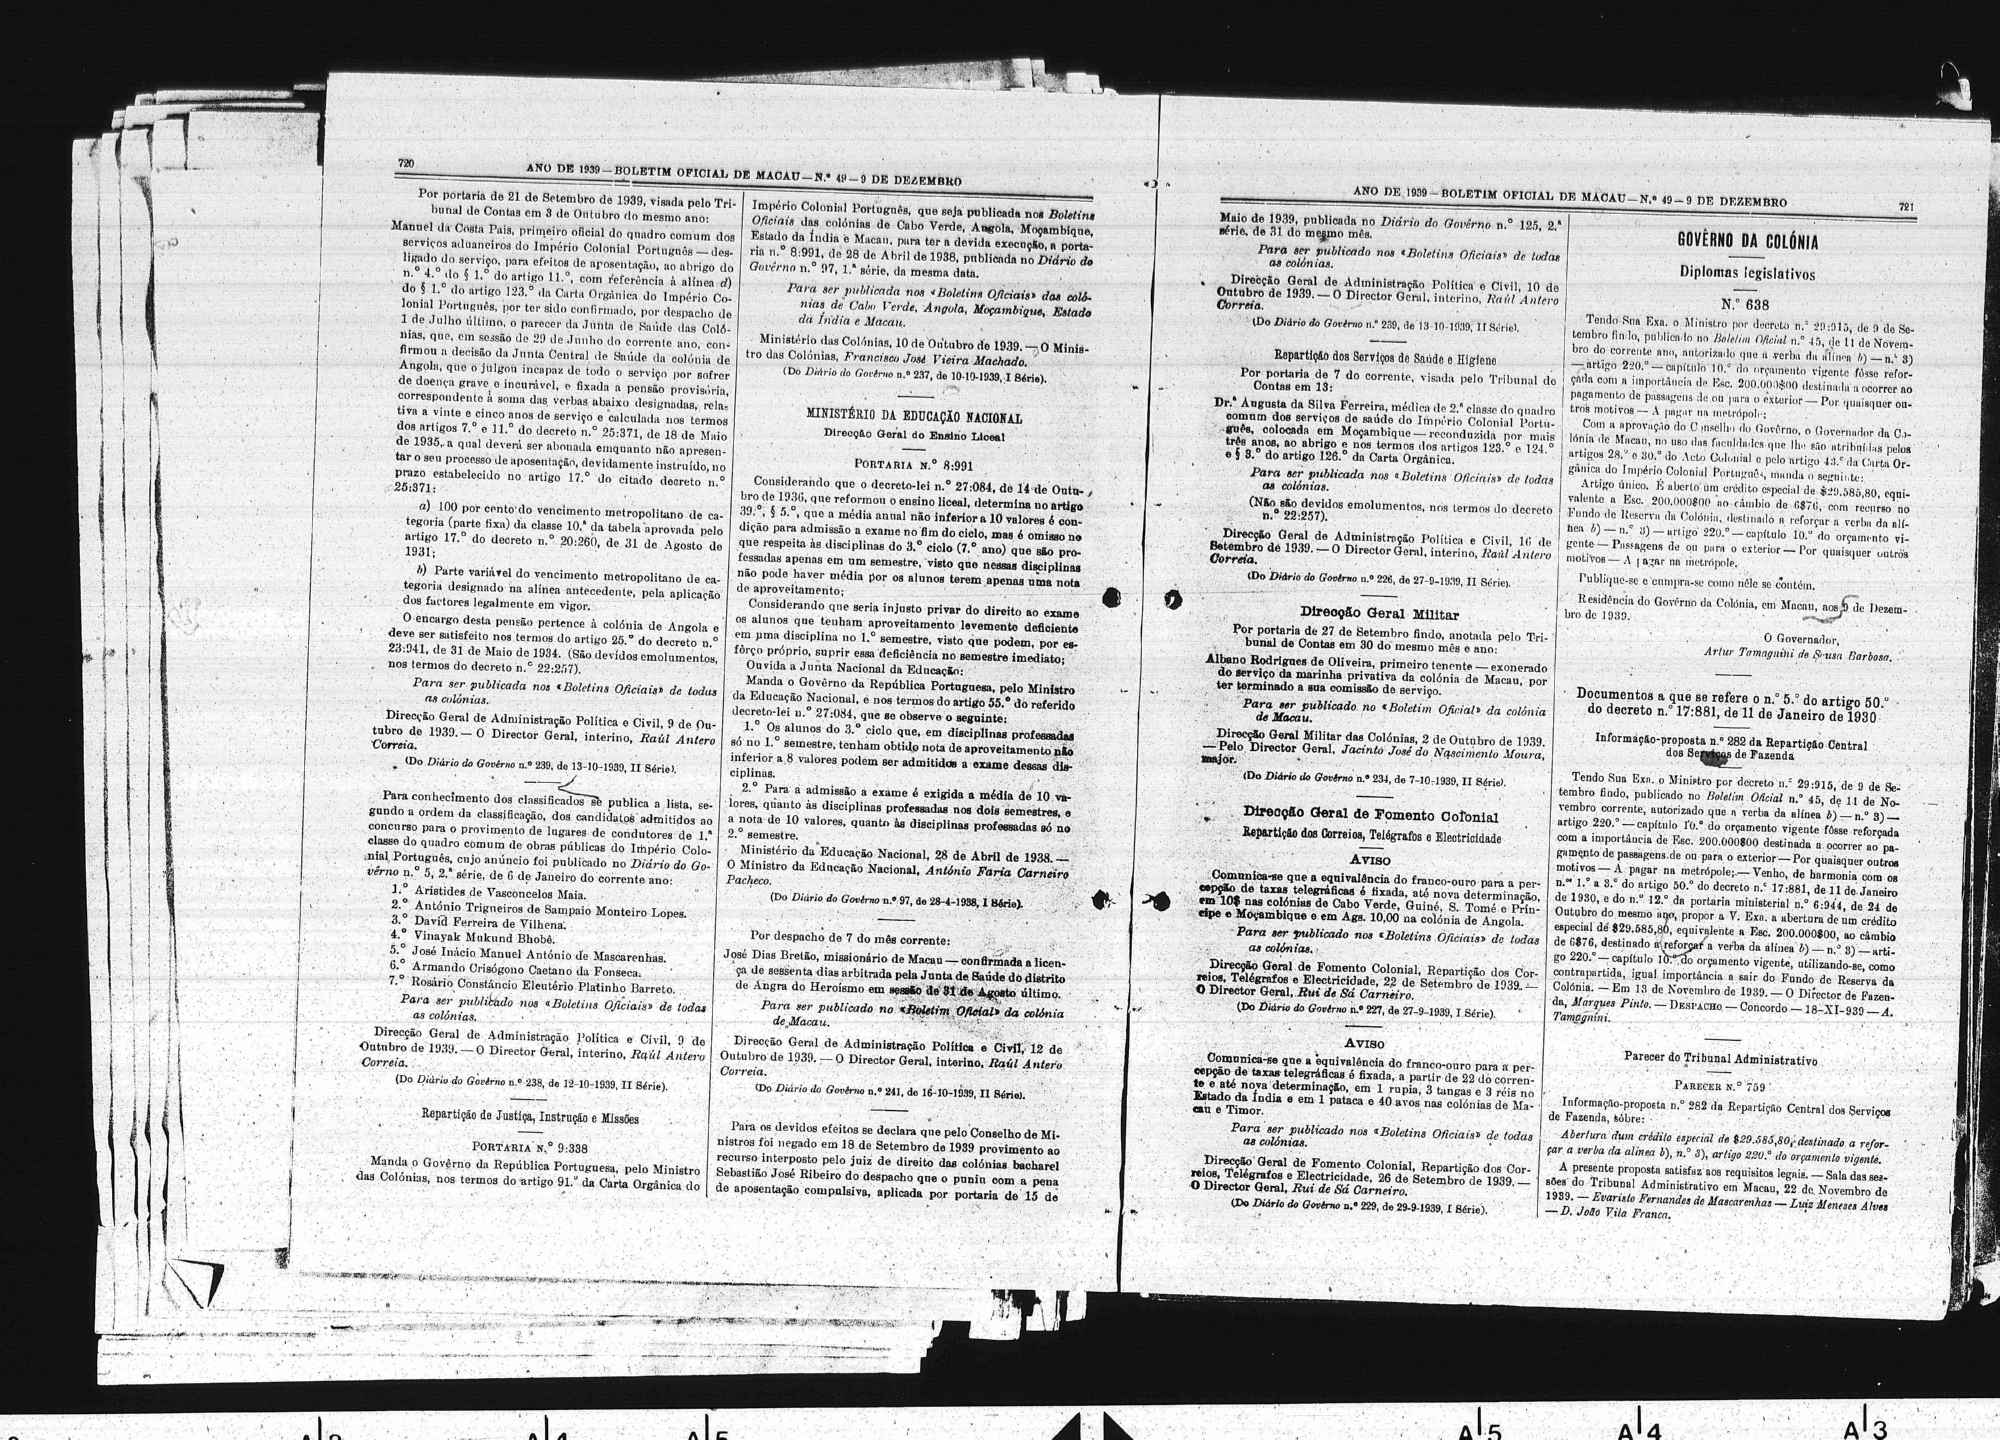 720
ANO DE 1939 — BOLETIM OFICIAL DE MACAU — N.º 49 — 9 DE DEZEMBRO
Por portaria de 21 de Setembro de 1939, visada pelo Tri-
bunal de Contas em 3 de Outubro do mesmo ano:
Manuel da Costa Pais, primeiro oficial do quadro comum dos
serviços aduaneiros do Império Colonial Português — des-
ligado do serviço, para efeitos de aposentação, ao abrigo do
n.º 4.º do § 1.º do artigo 11.º, com referência à alínea d)
do § 1.º do artigo 123.º da Carta Orgânica do Império Co-
lonial Português, por ter sido confirmado, por despacho de
1 de Julho último, o parecer da Junta de Saúde das Coló-
nias, que, em sessão de 29 de Junho do corrente ano, con-
firmou a decisão da Junta Central de Saúde da colónia de
Angola, que o julgou incapaz de todo o serviço por sofrer
de doença grave e incurável, e fixada a pensão provisória,
correspondente à soma das verbas abaixo designadas, rela-
tiva a vinte e cinco anos de serviço e calculada nos termos
dos artigos 7.º e 11.º do decreto n.º 25:371, de 18 de Maio
de 1935, a qual deverá ser abonada emquanto não apresen-
tar o seu processo de aposentação, devidamente instruído, no
prazo estabelecido no artigo 17.º do citado decreto n.º
25:371:
a) 100 por cento do vencimento metropolitano de ca-
tegoria (parte fixa) da classe 10.ª da tabela aprovada pelo
artigo 17.º do decreto n.º 20:260, de 31 de Agosto de
1931;
b) Parte variável do vencimento metropolitano de ca-
tegoria designado na alínea antecedente, pela aplicação
dos factores legalmente em vigor.
O encargo desta pensão pertence à colónia de Angola e
deve ser satisfeito nos termos do artigo 25.º do decreto n.º
23:941, de 31 de Maio de 1934. (São devidos emolumentos,
nos termos do decreto n.º 22:257).
Para ser publicada nos «Boletins Oficiais» de todas
as colónias.
Direcção Geral de Administração Política e Civil, 9 de Ou-
tubro de 1939. — O Director Geral, interino, Raúl Antero
Correia.
(Do Diário do Govêrno n.º 239, de 13-10-1939, II Série).
Para conhecimento dos classificados se publica a lista, se-
gundo a ordem da classificação, dos candidatos admitidos ao
concurso para o provimento de lugares de condutores de 1.ª
classe do quadro comum de obras públicas do Império Colo-
nial Português, cujo anúncio foi publicado no Diário do Go-
vêrno n.º 5, 2.ª série, de 6 de Janeiro do corrente ano:
1.º Aristides de Vasconcelos Maia.
2.º António Trigueiros de Sampaio Monteiro Lopes.
3.º David Ferreira de Vilhena.
4.º Vinayak Mukund Bhobé.
5.º José Inácio Manuel António de Mascarenhas.
6.º Armando Crisógono Caetano da Fonseca.
7.º Rosário Constâncio Eleutério Platinho Barreto.
Para ser publicado nos «Boletins Oficiais» de todas
as colónias.
Direcção Geral de Administração Política e Civil, 9 de
Outubro de 1939. — O Director Geral, interino, Raúl Antero
Correia.
(Do Diário do Govêrno n.º 238, de 12-10-1939, II Série).
Repartição de Justiça, Instrução e Missões
PORTARIA N.º 9:338
Manda o Govêrno da República Portuguesa, pelo Ministro
das Colónias, nos termos do artigo 91.º da Carta Orgânica do
Império Colonial Português, que seja publicada nos Boletins
Oficiais das colónias de Cabo Verde, Angola, Moçambique,
Estado da Índia e Macau, para ter a devida execução, a porta-
ria n.º 8:991, de 28 de Abril de 1938, publicada no Diário do
Govêrno n.º 97, 1.ª série, da mesma data.
Para ser publicada nos «Boletins Oficiais» das coló-
nias de Cabo Verde, Angola, Moçambique, Estado
da Índia e Macau.
Ministério das Colónias, 10 de Outubro de 1939. — O Minis-
tro das Colónias, Francisco José Vieira Machado.
(Do Diário do Govêrno n.º 237, de 10-10-1939, I Série).
MINISTÉRIO DA EDUCAÇÃO NACIONAL
Direcção Geral do Ensino Liceal
PORTARIA N.º 8:991
Considerando que o decreto-lei n.º 27:084, de 14 de Outu-
bro de 1936, que reformou o ensino liceal, determina no artigo
39.º, § 5.º, que a média anual não inferior a 10 valores é con-
dição para admissão a exame no fim do ciclo, mas é omisso no
que respeita às disciplinas do 3.º ciclo (7.º ano) que são pro-
fessadas apenas em um semestre, visto que nessas disciplinas
não pode haver média por os alunos terem apenas uma nota
de aproveitamento;
Considerando que seria injusto privar do direito ao exame
os alunos que tenham aproveitamento levemente deficiente
em uma disciplina no 1.º semestre, visto que podem, por es-
fôrço próprio, suprir essa deficiência no semestre imediato;
Ouvida a Junta Nacional da Educação:
Manda o Govêrno da República Portuguesa, pelo Ministro
da Educação Nacional, e nos termos do artigo 55.º do referido
decreto-lei n.º 27:084, que se observe o seguinte:
1.º Os alunos do 3.º ciclo que, em disciplinas professadas
só no 1.º semestre, tenham obtido nota de aproveitamento não
inferior a 8 valores podem ser admitidos a exame dessas dis-
ciplinas.
2.º Para a admissão a exame é exigida a média de 10 va-
lores, quanto às disciplinas professadas nos dois semestres, e
a nota de 10 valores, quanto às disciplinas professadas só no
2.º semestre.
Ministério da Educação Nacional, 28 de Abril de 1938. —
O Ministro da Educação Nacional, António Faria Carneiro
Pacheco.
(Do Diário do Govêrno n.º 97, de 28-4-1938, I Série).
Por despacho de 7 do mês corrente:
José Dias Bretão, missionário de Macau — confirmada a licen-
ça de sessenta dias arbitrada pela Junta de Saúde do distrito
de Angra do Heroísmo em sessão de 31 de Agosto último.
Para ser publicado no «Boletim Oficial» da colónia
de Macau.
Direcção Geral de Administração Política e Civil, 12 de
Outubro de 1939. — O Director Geral, interino, Raúl Antero
Correia.
(Do Diário do Govêrno n.º 241, de 16-10-1939, II Série).
Para os devidos efeitos se declara que pelo Conselho de Mi-
nistros foi negado em 18 de Setembro de 1939 provimento ao
recurso interposto pelo juiz de direito das colónias bacharel
Sebastião José Ribeiro do despacho que o puniu com a pena
de aposentação compulsiva, aplicada por portaria de 15 de
ANO DE 1939 — BOLETIM OFICIAL DE MACAU — N.º 49 — 9 DE DEZEMBRO
721
Maio de 1939, publicada no Diário do Govêrno n.º 125, 2.ª
série, de 31 do mesmo mês.
Para ser publicado nos «Boletins Oficiais» de todas
as colónias.
Direcção Geral de Administração Política e Civil, 10 de
Outubro de 1939. — O Director Geral, interino, Raúl Antero
Correia.
(Do Diário do Govêrno n.º 239, de 13-10-1939, II Série).
Repartição dos Serviços de Saúde e Higiene
Por portaria de 7 do corrente, visada pelo Tribunal de
Contas em 13:
Dr.ª Augusta da Silva Ferreira, médica de 2.ª classe do quadro
comum dos serviços de saúde do Império Colonial Portu-
guês, colocada em Moçambique — reconduzida por mais
três anos, ao abrigo e nos termos dos artigos 123.º e 124.º
e § 3.º do artigo 126.º da Carta Orgânica.
Para ser publicada nos «Boletins Oficiais» de todas
as colónias.
(Não são devidos emolumentos, nos termos do decreto
n.º 22:257).
Direcção Geral de Administração Política e Civil, 16 de
Setembro de 1939. — O Director Geral, interino, Raúl Antero
Correia.
(Do Diário do Govêrno n.º 226, de 27-9-1939, II Série).
Direcção Geral Militar
Por portaria de 27 de Setembro findo, anotada pelo Tri-
bunal de Contas em 30 do mesmo mês e ano:
Albano Rodrigues de Oliveira, primeiro tenente — exonerado
do serviço da marinha privativa da colónia de Macau, por
ter terminado a sua comissão de serviço.
Para ser publicado no «Boletim Oficial» da colónia
de Macau.
Direcção Geral Militar das Colónias, 2 de Outubro de 1939.
— Pelo Director Geral, Jacinto José do Nascimento Moura,
major.
(Do Diário do Govêrno n.º 234, de 7-10-1939, II Série).
Direcção Geral de Fomento Colonial
Repartição dos Correios, Telégrafos e Electricidade
AVISO
Comunica-se que a equivalência do franco-ouro para a per-
cepção de taxas telegráficas é fixada, até nova determinação,
em 10$ nas colónias de Cabo Verde, Guiné, S. Tomé e Prín-
cipe e Moçambique e em Ags. 10,00 na colónia de Angola.
Para ser publicado nos «Boletins Oficiais» de todas
as colónias.
Direcção Geral de Fomento Colonial, Repartição dos Cor-
reios, Telégrafos e Electricidade, 22 de Setembro de 1939. —
O Director Geral, Rui de Sá Carneiro.
(Do Diário do Govêrno n.º 227, de 27-9-1939, I Série).
AVISO
Comunica-se que a equivalência do franco-ouro para a per-
cepção de taxas telegráficas é fixada, a partir de 22 do corren-
te e até nova determinação, em 1 rupia, 3 tangas e 3 réis no
Estado da Índia e em 1 pataca e 40 avos nas colónias de Ma-
cau e Timor.
Para ser publicado nos «Boletins Oficiais» de todas
as colónias.
Direcção Geral de Fomento Colonial, Repartição dos Cor-
reios, Telégrafos e Electricidade, 26 de Setembro de 1939. —
O Director Geral, Rui de Sá Carneiro.
(Do Diário do Govêrno n.º 229, de 29-9-1939, I Série).
GOVÊRNO DA COLÓNIA
Diplomas legislativos
N.º 638
Tendo Sua Exa. o Ministro por decreto n.º 29:915, de 9 de Se-
tembro findo, publicado no Boletim Oficial n.º 45, de 11 de Novem-
bro do corrente ano, autorizado que a verba da alínea b) — n.º 3)
— artigo 220.º — capítulo 10.º do orçamento vigente fôsse refor-
çada com a importância de Esc. 200.000$00 destinada a ocorrer ao
pagamento de passagens de ou para o exterior — Por quaisquer ou-
tros motivos — A pagar na metrópole;
Com a aprovação do Conselho do Govêrno, o Governador da Co-
lónia de Macau, no uso das faculdades que lhe são atribuídas pelos
artigos 28.º e 30.º do Acto Colonial e pelo artigo 43.º da Carta Or-
gânica do Império Colonial Português, manda o seguinte:
Artigo único. É aberto um crédito especial de $29.585,80, equi-
valente a Esc. 200.000$00 ao câmbio de 6$76, com recurso no
Fundo de Reserva da Colónia, destinado a reforçar a verba da alí-
nea b) — n.º 3) — artigo 220.º — capítulo 10.º do orçamento vi-
gente — Passagens de ou para o exterior — Por quaisquer outros
motivos — A pagar na metrópole.
Publique-se e cumpra-se como nêle se contém.
Residência do Govêrno da Colónia, em Macau, aos 9 de Dezem-
bro de 1939.
O Governador,
Artur Tamagnini de Sousa Barbosa.
Documentos a que se refere o n.º 5.º do artigo 50.º
do decreto n.º 17:881, de 11 de Janeiro de 1930
Informação-proposta n.º 282 da Repartição Central
dos Serviços de Fazenda
Tendo Sua Exa. o Ministro por decreto n.º 29:915, de 9 de Se-
tembro findo, publicado no Boletim Oficial n.º 45, de 11 de No-
vembro corrente, autorizado que a verba da alínea b) — n.º 3) —
artigo 220.º — capítulo 10.º do orçamento vigente fôsse reforçada
com a importância de Esc. 200.000$00 destinada a ocorrer ao pa-
gamento de passagens de ou para o exterior — Por quaisquer outros
motivos — A pagar na metrópole; — Venho, de harmonia com os
n.ºs 1.º a 3.º do artigo 50.º do decreto n.º 17:881, de 11 de Janeiro
de 1930, e do n.º 12.º da portaria ministerial n.º 6:944, de 24 de
Outubro do mesmo ano, propor a V. Exa. a abertura de um crédito
especial de $29.585,80, equivalente a Esc. 200.000$00, ao câmbio
de 6$76, destinado a reforçar a verba da alínea b) — n.º 3) — arti-
go 220.º — capítulo 10.º do orçamento vigente, utilizando-se, como
contrapartida, igual importância a sair do Fundo de Reserva da
Colónia. — Em 13 de Novembro de 1939. — O Director de Fazen-
da, Marques Pinto. — DESPACHO — Concordo — 18-XI-939 — A.
Tamagnini.
Parecer do Tribunal Administrativo
PARECER N.º 759
Informação-proposta n.º 282 da Repartição Central dos Serviços
de Fazenda, sôbre:
Abertura dum crédito especial de $29.585,80, destinado a refor-
çar a verba da alínea b), n.º 3), artigo 220.º do orçamento vigente.
A presente proposta satisfaz aos requisitos legais. — Sala das ses-
sões do Tribunal Administrativo em Macau, 22 de Novembro de
1939. — Evaristo Fernandes de Mascarenhas — Luiz Meneses Alves
— D. João Vila Franca.
A|5
A|4
A|3